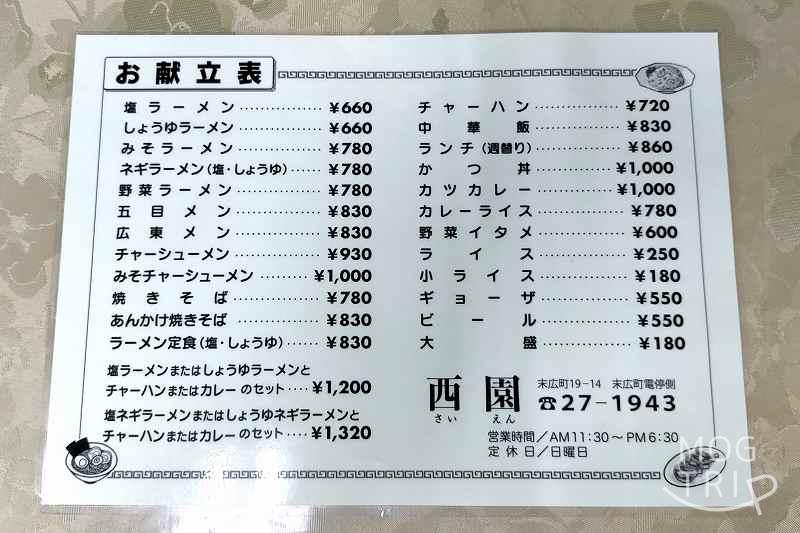 お献立表
塩ラーメン ················ ¥660
しょうゆラーメン ················ ¥660
みそラーメン ················ ¥780
ネギラーメン(塩・しょうゆ) ······ ¥780
野菜ラーメン ················ ¥780
五目メン ················ ¥830
広東メン ················ ¥830
チャーシューメン ················ ¥930
みそチャーシューメン ·········· ¥1,000
焼きそば ················ ¥780
あんかけ焼きそば ················ ¥830
ラーメン定食(塩・しょうゆ) ······ ¥830
塩ラーメンまたはしょうゆラーメンと
チャーハンまたはカレーのセット ···· ¥1,200
塩ネギラーメンまたはしょうゆネギラーメンと
チャーハンまたはカレーのセット ···· ¥1,320
チャーハン ················ ¥720
中華飯 ················ ¥830
ランチ(週替り) ················ ¥860
かつ丼 ················ ¥1,000
カツカレー ················ ¥1,000
カレーライス ················ ¥780
野菜イタメ ················ ¥600
ライス ················ ¥250
小ライス ················ ¥180
ギョーザ ················ ¥550
ビール ················ ¥550
大盛 ················ ¥180
西園
さいえん
末広町19-14 末広町電停側
☎27-1943
営業時間/AM11:30~PM6:30
定休日/日曜日
MOG
TRIP